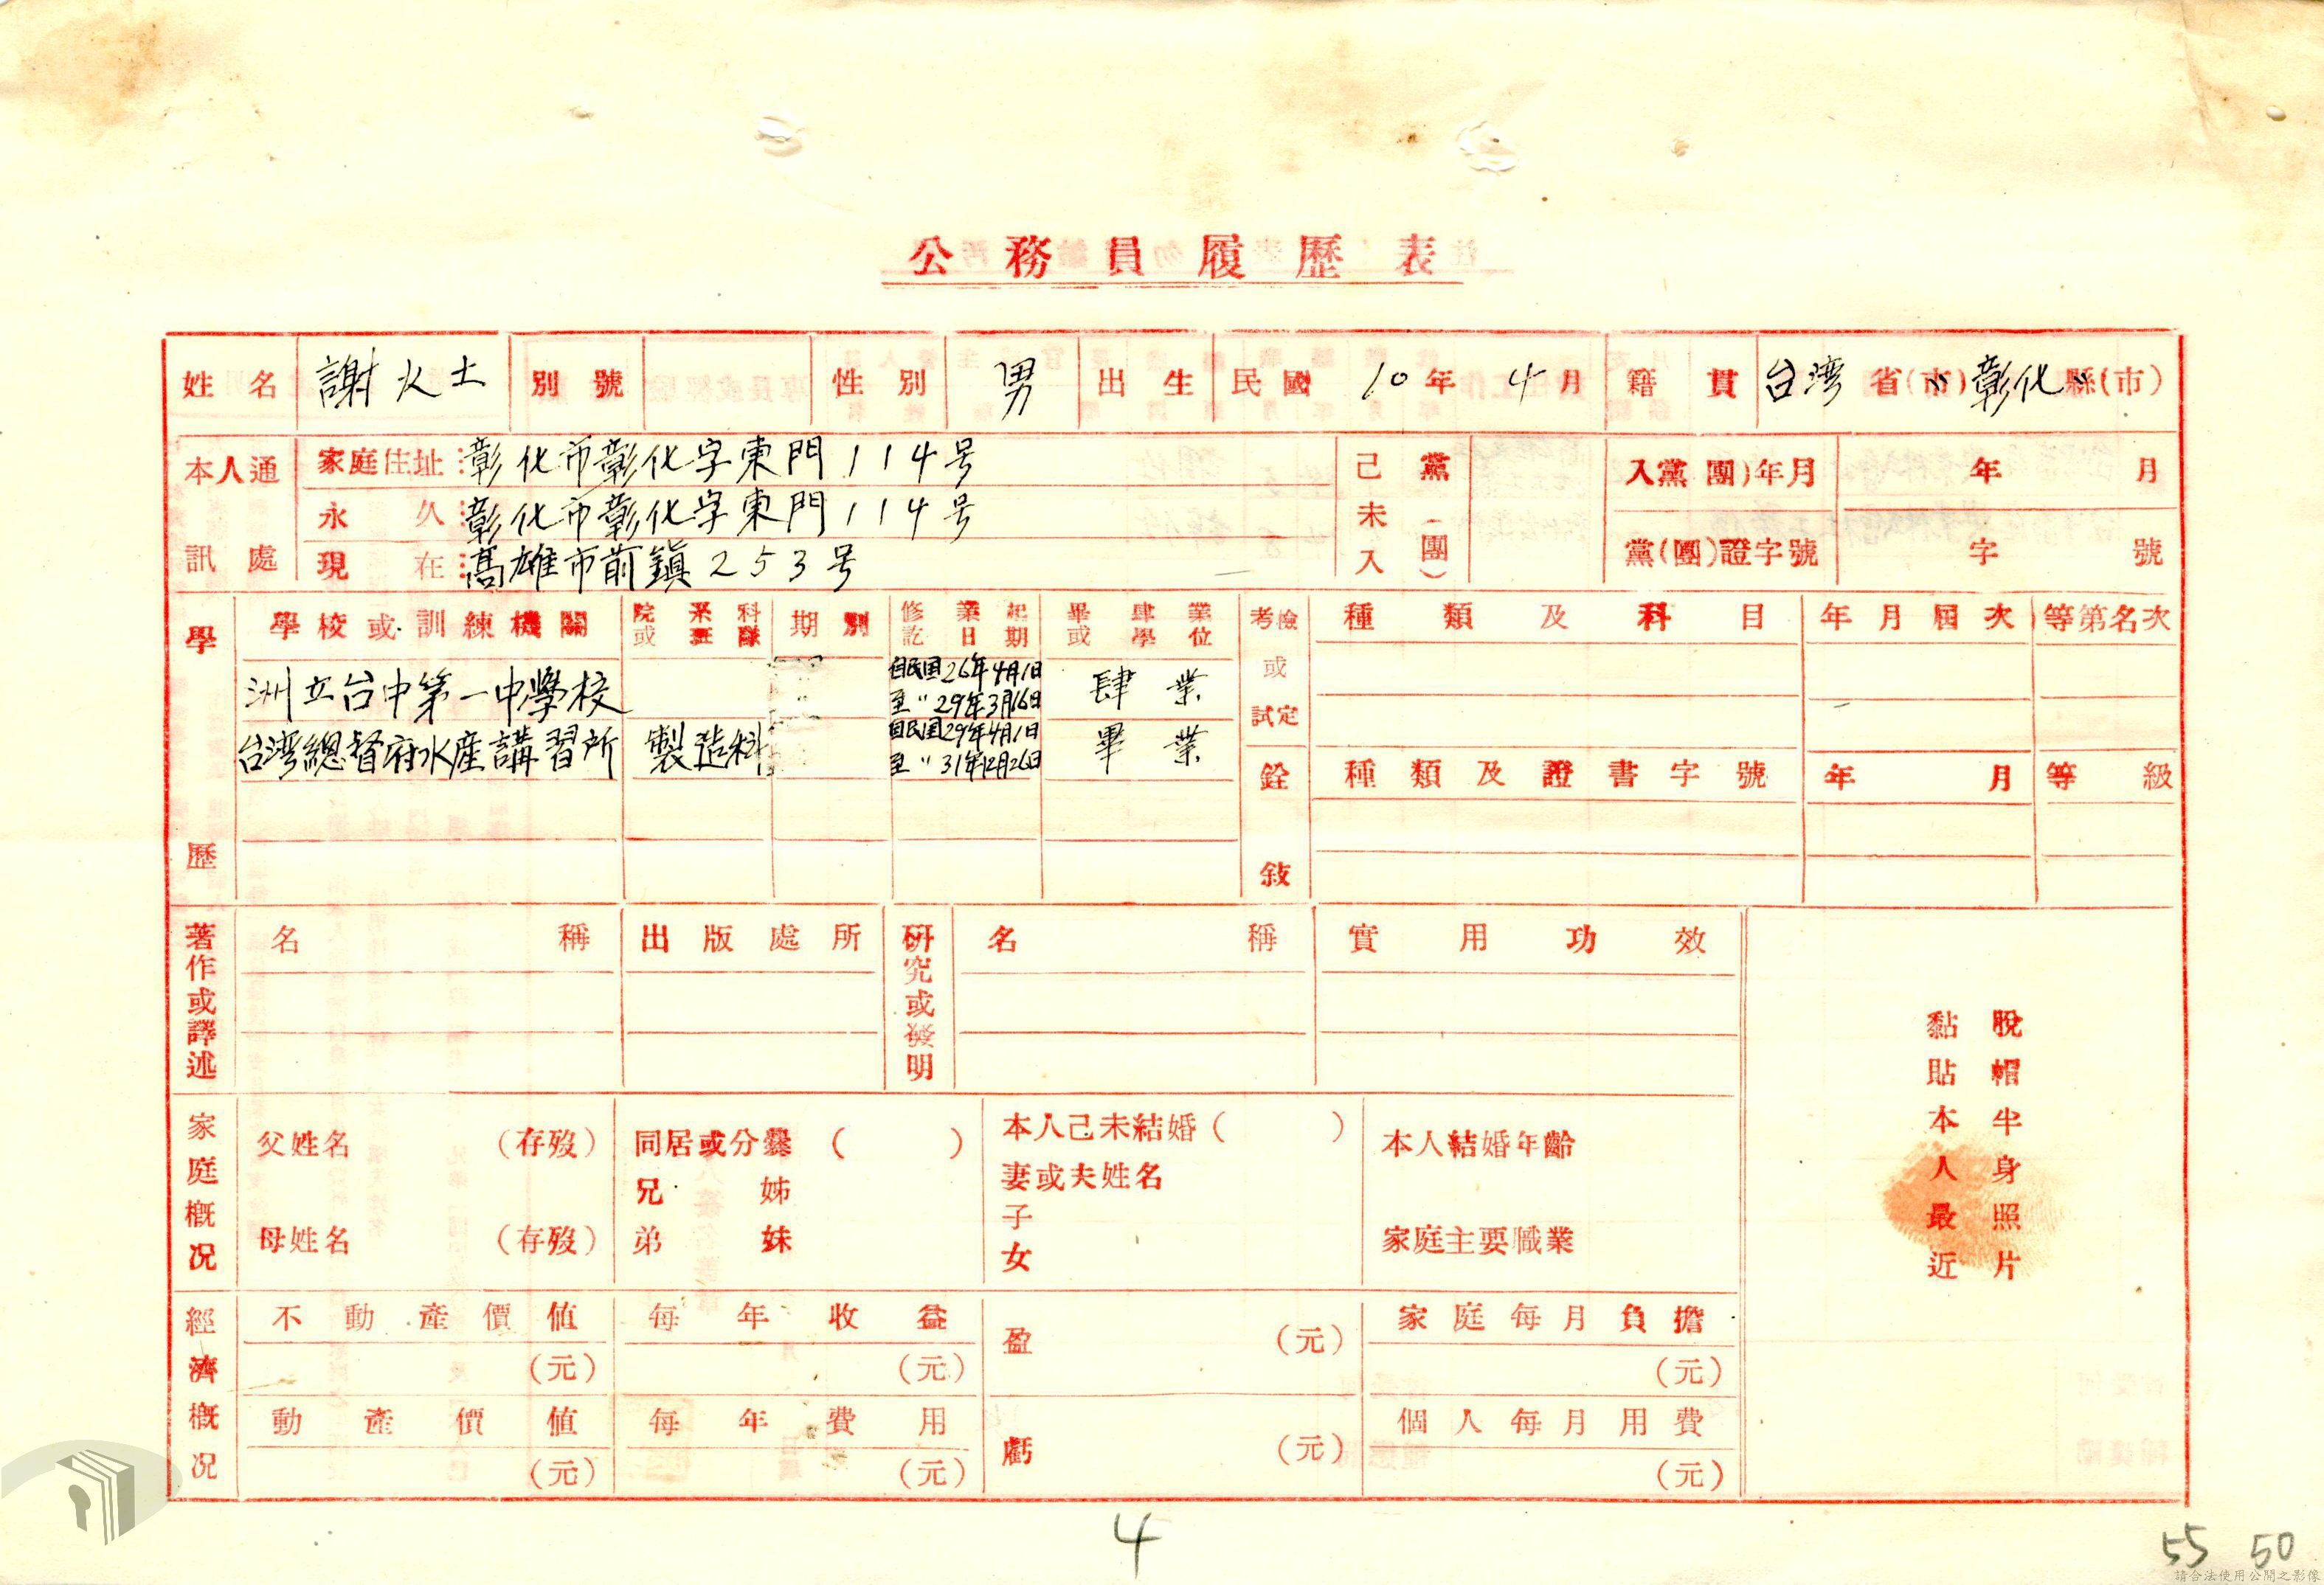 公務員履歷表
姓名 謝火土 別號 性別 男 出生民國 10年 4月 籍貫 台湾省(市)彰化縣(市)
本人通訊處
家庭住址 彰化市彰化字東門114号
永久 彰化市彰化字東門114号
現在 高雄市前鎮253号
己未入黨(團)
入黨團)年月 年 月
黨(團)證字號 字 號
學歷
學校或訓練機關 院系科或班隊 期別 修業起訖日期 畢肄業或學位
洲立台中第一中學校 自民国26年4月1日 肆業
至〃29年3月16日
台湾總督府水産講習所 製造科 自民国29年4月1日 畢業
至〃31年12月26日
考檢或試定 種類及科目 年月屆次 等第名次
銓敍 種類及證書字號 年月 等級
著作或譯述 名稱 出版處所
研究或發明 名稱 實用功效
家庭概况
父姓名 (存歿) 同居或分爨( ) 本人己未結婚( ) 本人結婚年齡
兄 姊 妻或夫姓名
母姓名 (存歿) 弟 妹 子 家庭主要職業
女
經濟概况
不動產價值 每年收益 盈 (元) 家庭每月負擔
(元) (元) (元)
動產價值 每年費用 虧 (元) 個人每月用費
(元) (元) (元)
脫帽半身照片
黏貼本人最近
4
55 50
請合法使用公開之影像